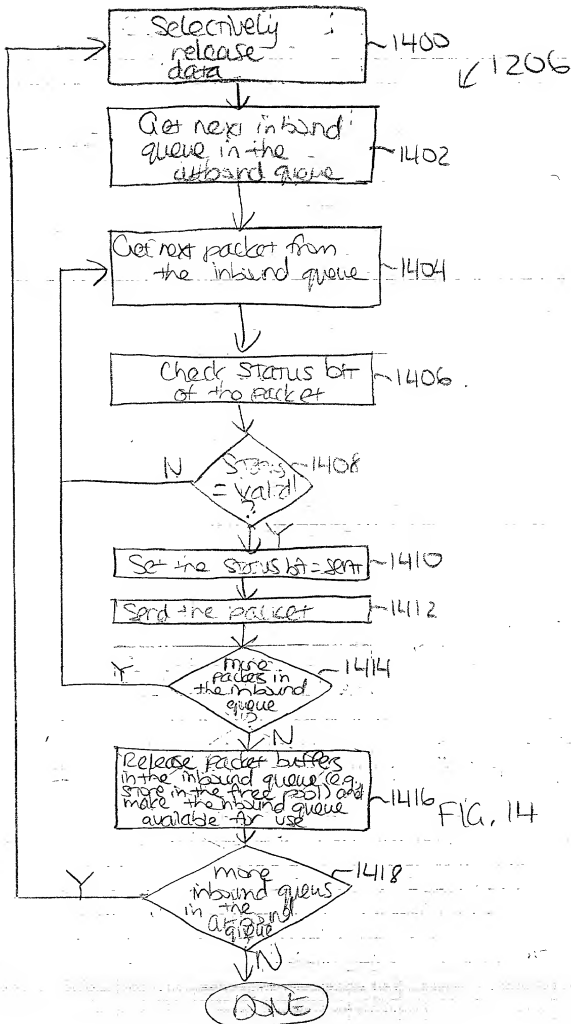 Selectively
release
data
1400
1206
Get next inbound
queue in the
outbound queue
1402
Get next packet from
the inbound queue
1404
Check Status bit
of the packet
1406
N
Status
= valid
?
1408
Y
Set the status bit = sent
1410
Send the packet
1412
Y
more
packets in
the inbound
queue
?
1414
N
Release packet buffers
in the inbound queue (e.g.
store in the free pool) and
make the inbound queue
available for use
1416
FIG. 14
Y
more
inbound queues
in the
outbound
queue
1418
N
DONE